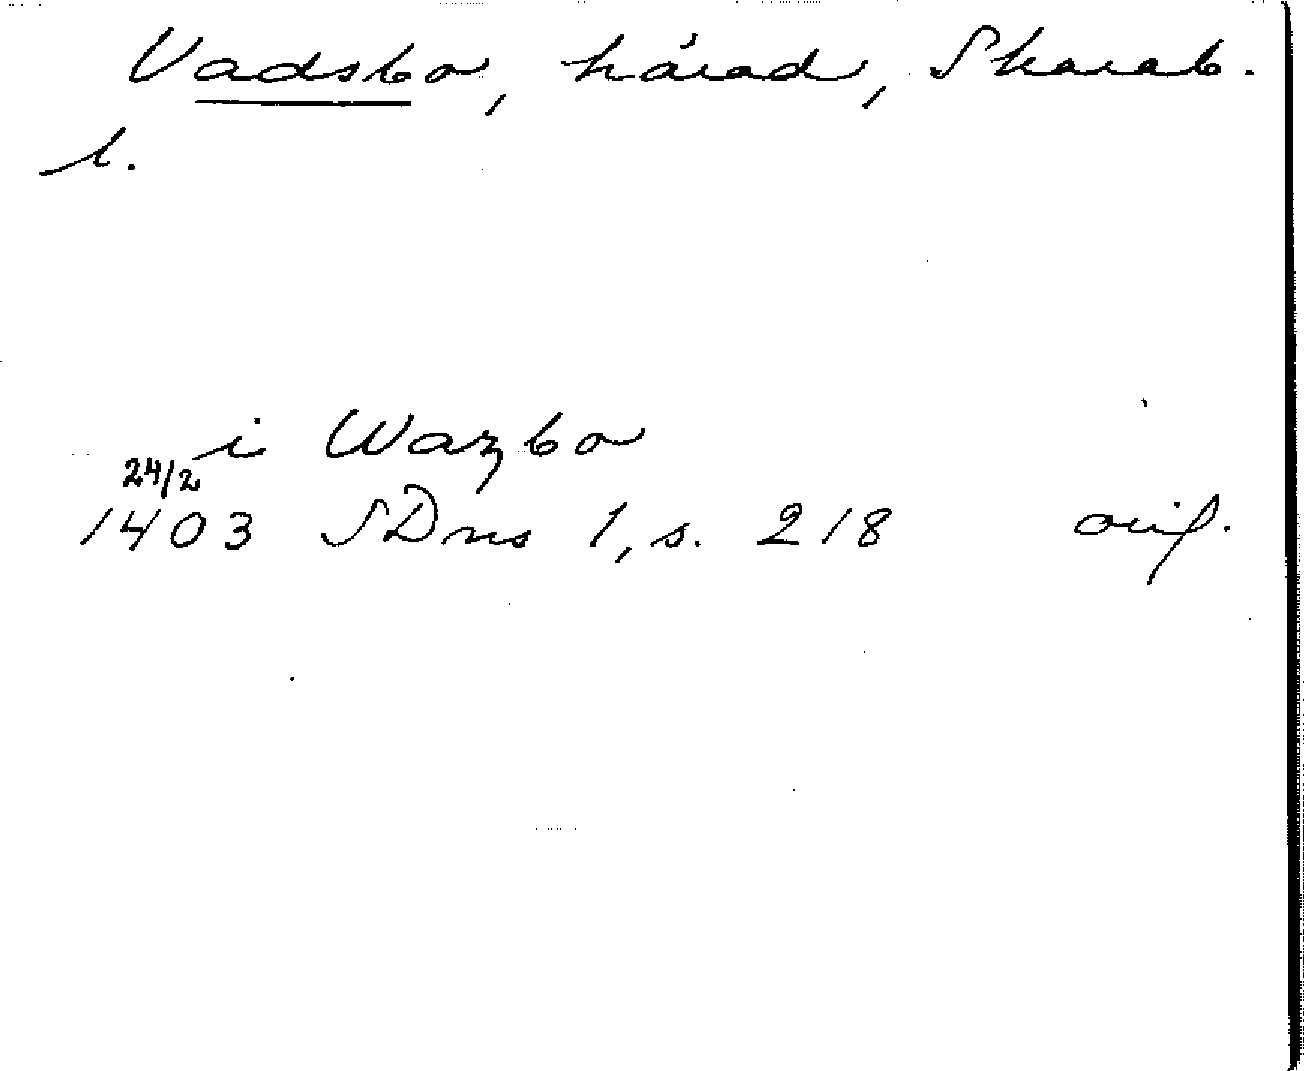 Vadsbo, härad, Skarab.
l.
i Wazbo
24/2
1403 SDns 1, s. 218 orig.